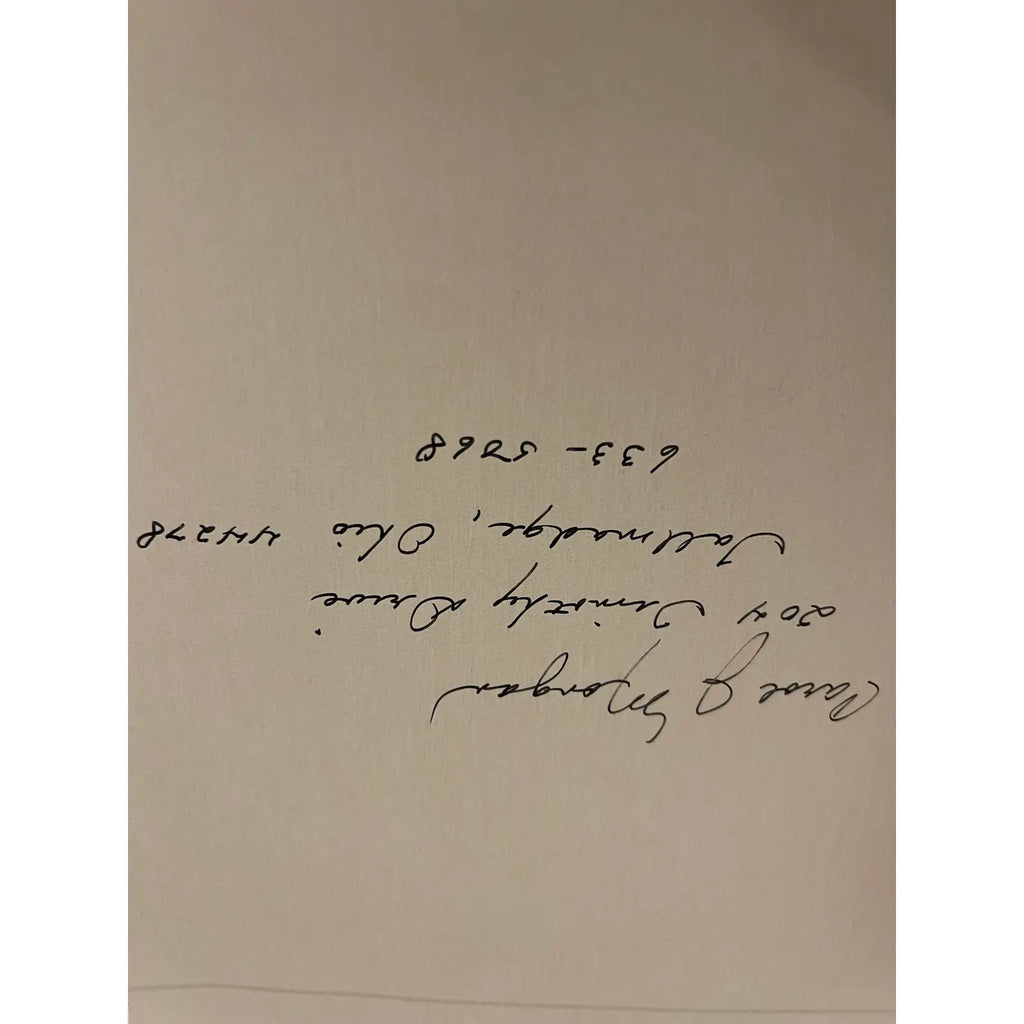 Carol J Morgan
204 Timothy Drive
Tallmadge, Ohio 44278
633-5068